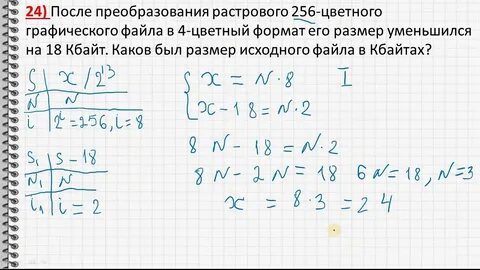 24) После преобразования растрового 256-цветного
графического файла в 4-цветный формат его размер уменьшился
на 18 Кбайт. Каков был размер исходного файла в Кбайтах?
S | x / 2¹³
N | N
i | 2ⁱ = 256, i = 8
S₁ | S - 18
N₁ | N
i₁ | i = 2
x = N · 8 I
x - 18 = N · 2
8 N - 18 = N · 2
8 N - 2 N = 18 6 N = 18, N = 3
x = 8 · 3 = 2 4